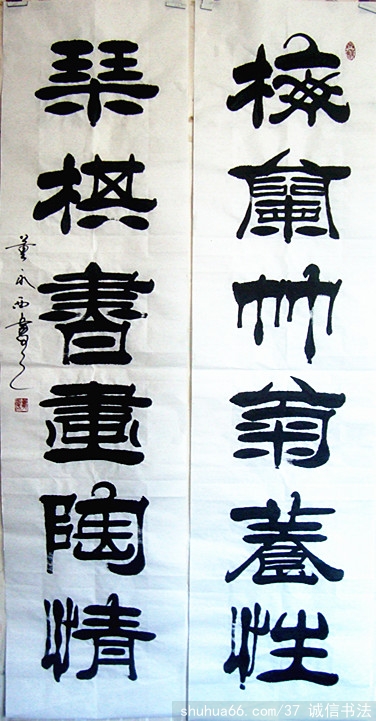 梅蘭竹菊養性
琴棋書畫陶情
董永西書
shuhua66.com/37 诚信书法